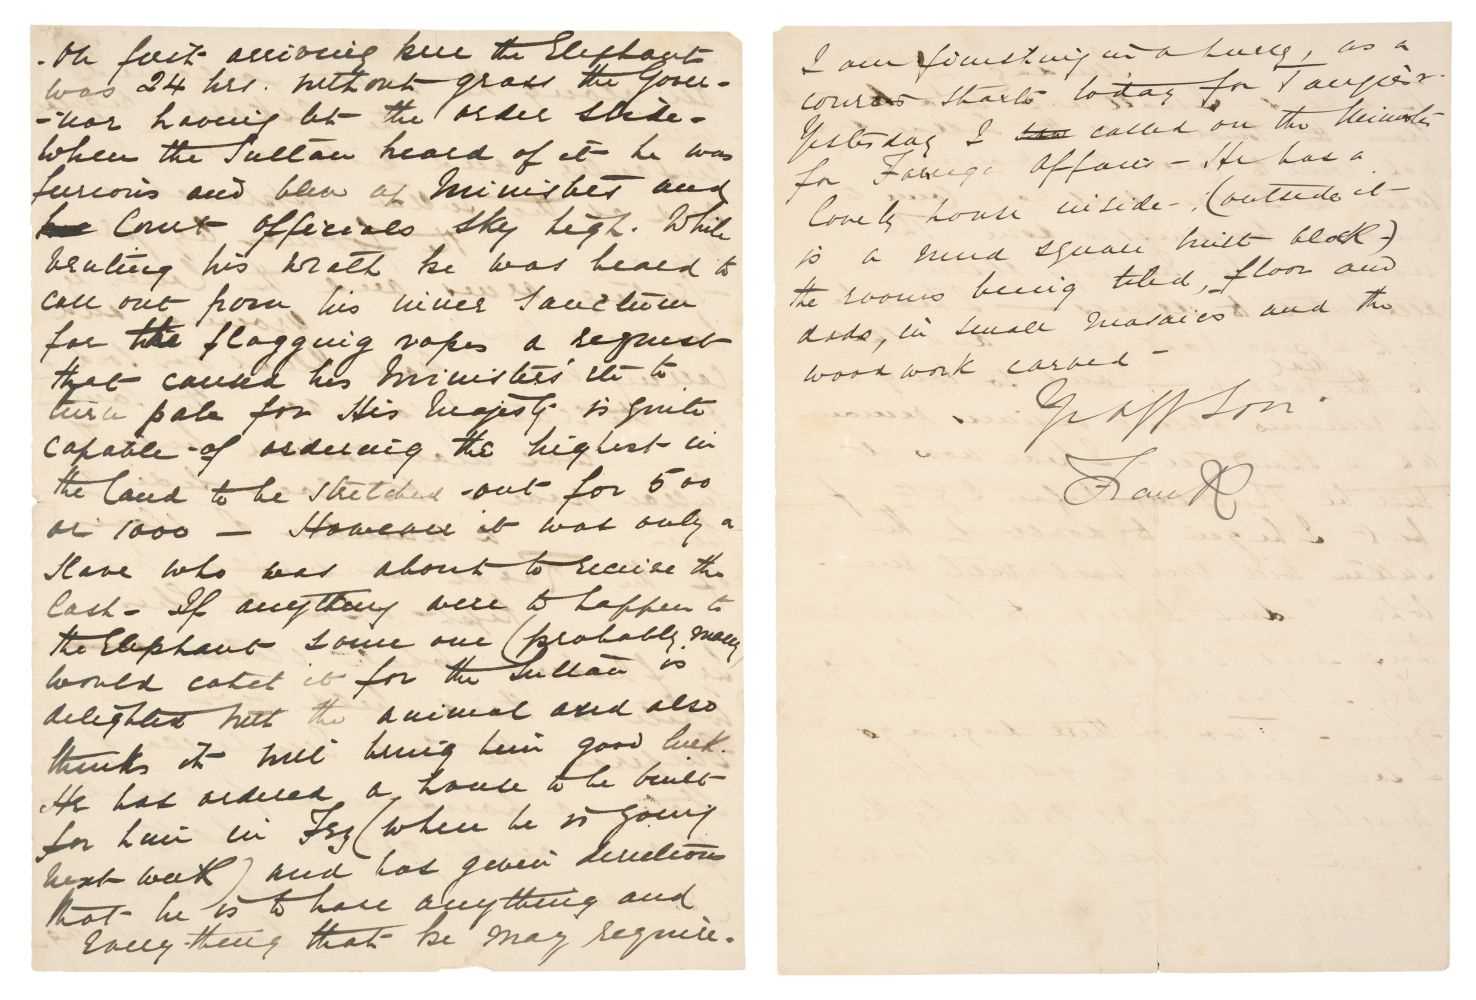 On first arriving here the Elephant
was 24 hrs. without grass the Gover-
-nor having let the order slide-
When the Sultan heard of it he was
furious and blew up Ministers and
Court officials sky high. While
venting his wrath he was heard to
call out from his inner Sanctum
for the flogging ropes a request
that caused his Ministers etc to
turn pale for His Majesty is quite
capable of ordering the highest in
the land to be stretched out for 500
or 1000 — However it was only a
slave who was about to receive the
lash - If anything were to happen to
the Elephant some one (probably many)
would catch it for the Sultan is
delighted with the animal and also
thinks it will bring him good luck.
He has ordered a house to be built
for him in Fez (when he is going
next week) and has given directions
that he is to have anything and
everything that he may require.
I am finishing in a hurry, as a
courier starts today for Tangier.
Yesterday I called on the Minister
for Foreign Affairs - He has a
lovely house inside - (outside it
is a mud square built block -)
the rooms being tiled, floor and
dado, in small mosaics and the
woodwork carved -
Yr aff Son.
Frank